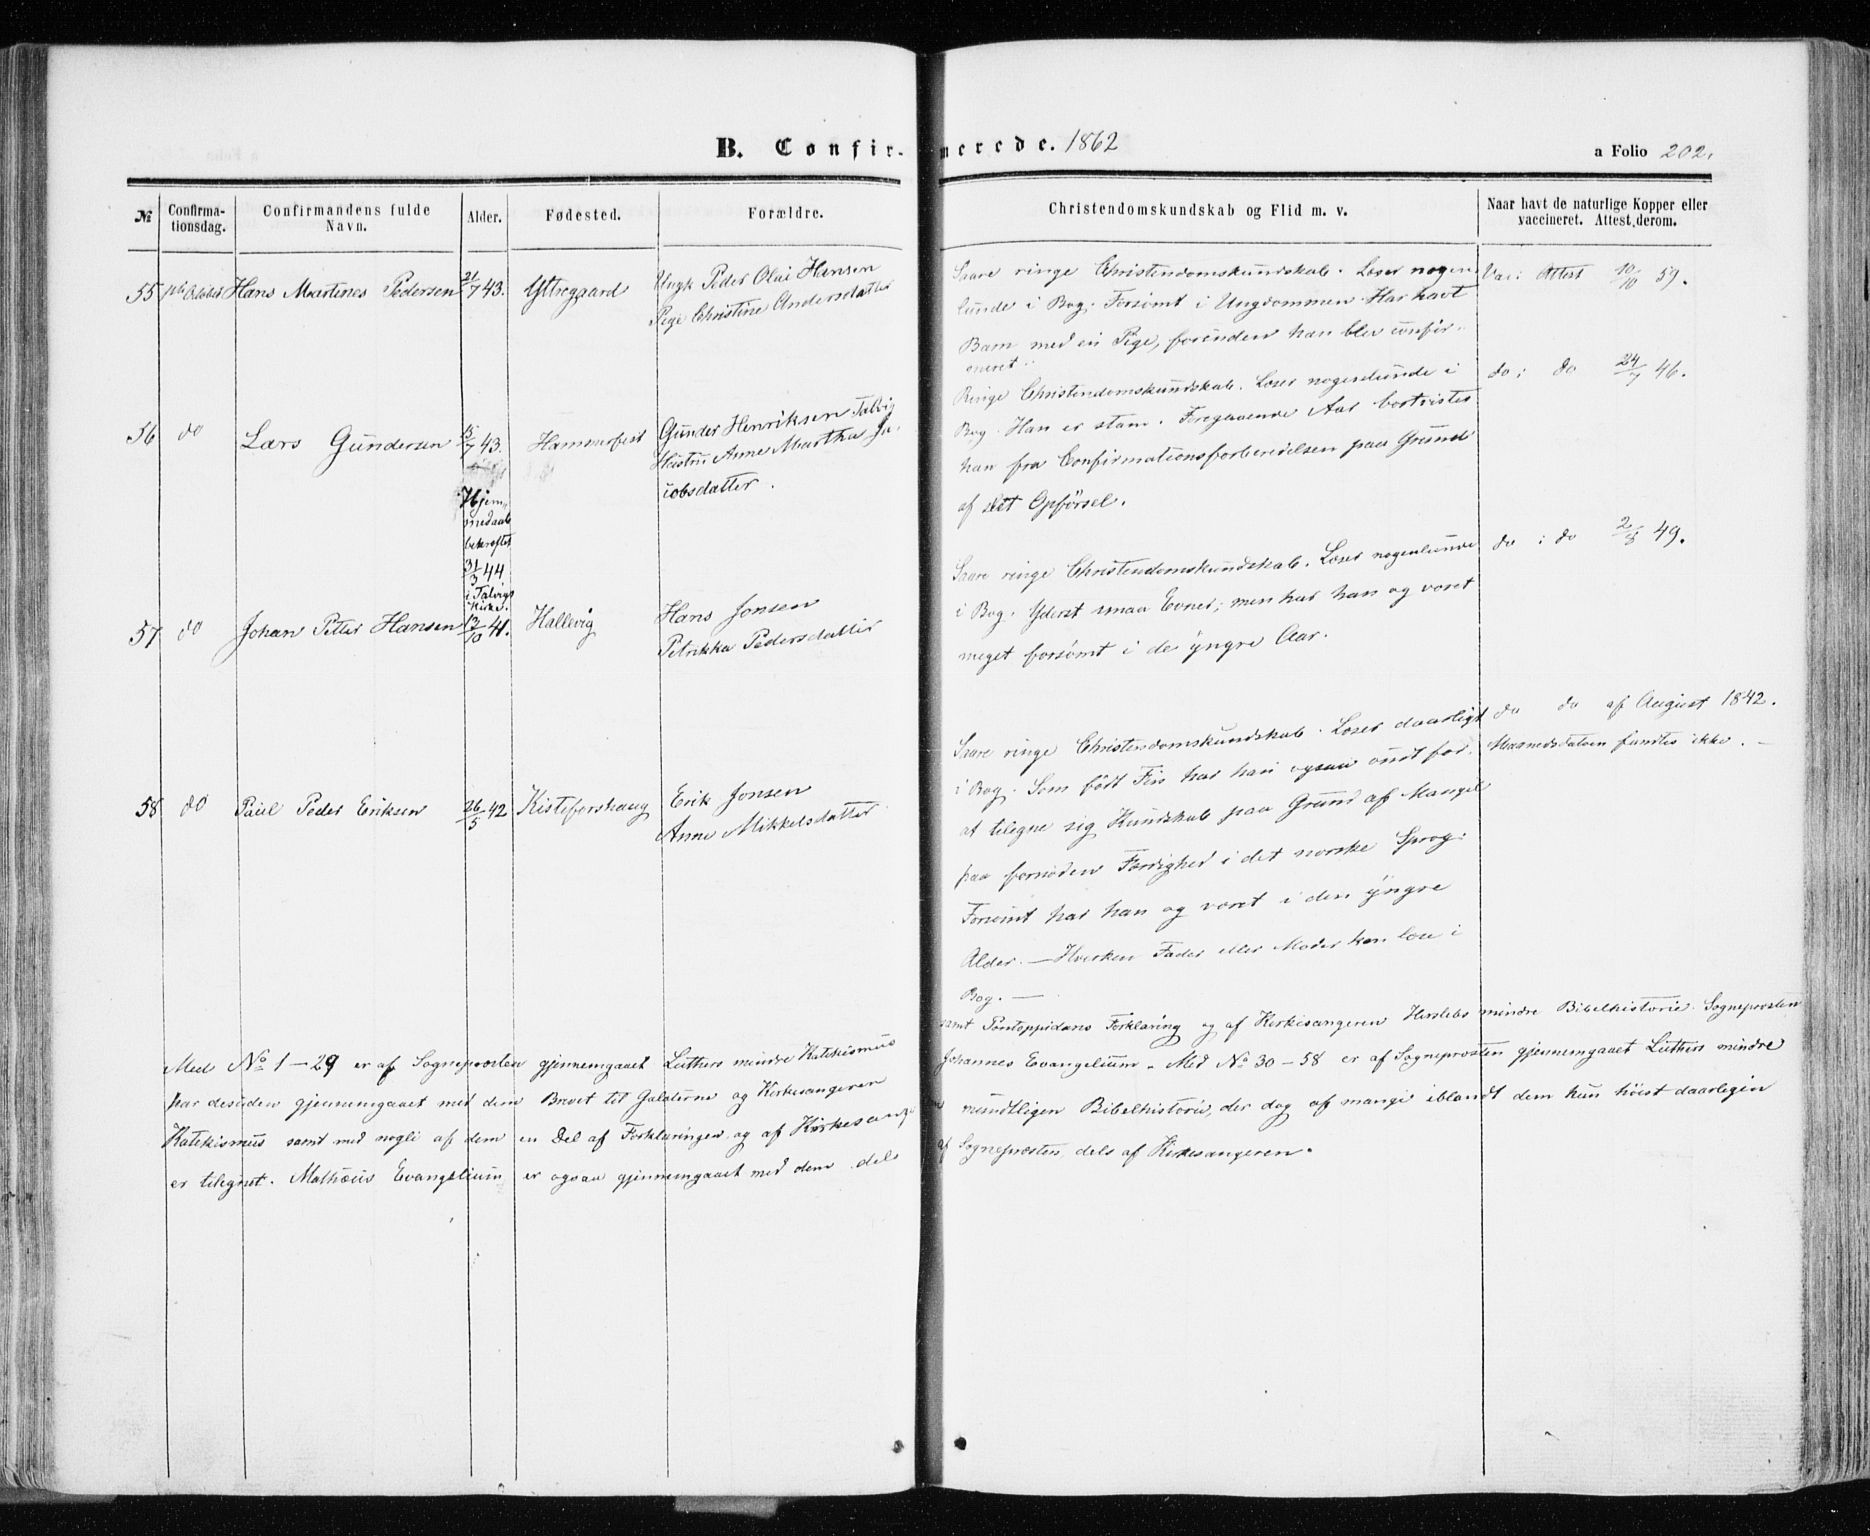 B. Confirmerede. 1862
a Folio 202.
№
Confirmationsdag.
Confirmandens fulde Navn.
Alder.
Fødested.
Forældre.
Christendomskundskab og Flid m. v.
Naar havt de naturlige Kopper eller vaccineret. Attest derom.
55 October Hans Martines Pedersen 21/7 43. Yttregaard
Ungk Peder Olai Hansen
Pige Christine Andersdatter
Saare ringe Christendomskundskab. Læser nogen
lunde i Bog. Forsömt i Ungdommen. Har havt
Barn med en Pige, forinden han blev confir-
meret.
Vac: Attest 10/10 59.
56 do Lars Gundersen 15/7 43. Hammerfest
Hjem-
medaab
bekræftet
31/3 44
i Talvigs
Kirke.
Gunder Henriksen Talvig
Hustru Anne Martha Ja-
cobsdatter.
Ringe Christendomskundskab. Læser nogenlunde i
Bog. Han er stam. Foregaaende Aar bortvistes
han fra Confirmationsforberedelsen paa Grund
af slet Opførsel.
do: do 24/7 46.
57 do Johan Petter Hansen 12/10 41. Hallevig
Hans Jonsen
Petrikka Pedersdatter
Saare ringe Christendomskundskab. Læser nogenlunde
i Bog. Yderst smaa Evner; men har han og været
meget forsömt i de yngre Aar.
do: do 49.
58 do Paul Peder Eriksen 26/5 42 Kisteforshaug
Erik Jonsen
Anne Mikkelsdatter
Saare ringe Christendomskundskab. Læser daarligt
i Bog. Som födt Fin har han ogsaa ondt for
at tilegne sig Kundskab paa Grund af Mangel
paa fornøden Færdighed i det norske Sprog.
Forsömt har han og været i den yngre
Alder. — Hverken Fader eller Moder kan læse i
Bog. —
do do af August 1842.
Maanedsdatoen fandtes ikke. —
Med No 1–29 er af Sogneprosten gjennemgaaet Luthers mindre Katekismus samt Pontoppidans Forklaring og af Kirkesangeren Herslebs mindre Bibelhistorie. Sogneprosten
har desuden gjennemgaaet med dem Brevet til Galaterne og Kirkesangeren Johannes Evangelium. Med No 30–58 er af Sogneprosten gjennemgaaet Luthers mindre
Katekismus samt med nogle af dem en Del af Forklaringen og af Kirkesang. mundtligen Bibelhistorie, der dog af mange iblandt dem kun höist daarligen
er tilegnet. Mathæus Evangelium er ogsaa gjennemgaaet med dem dels af Sogneprosten, dels af Kirkesangeren.